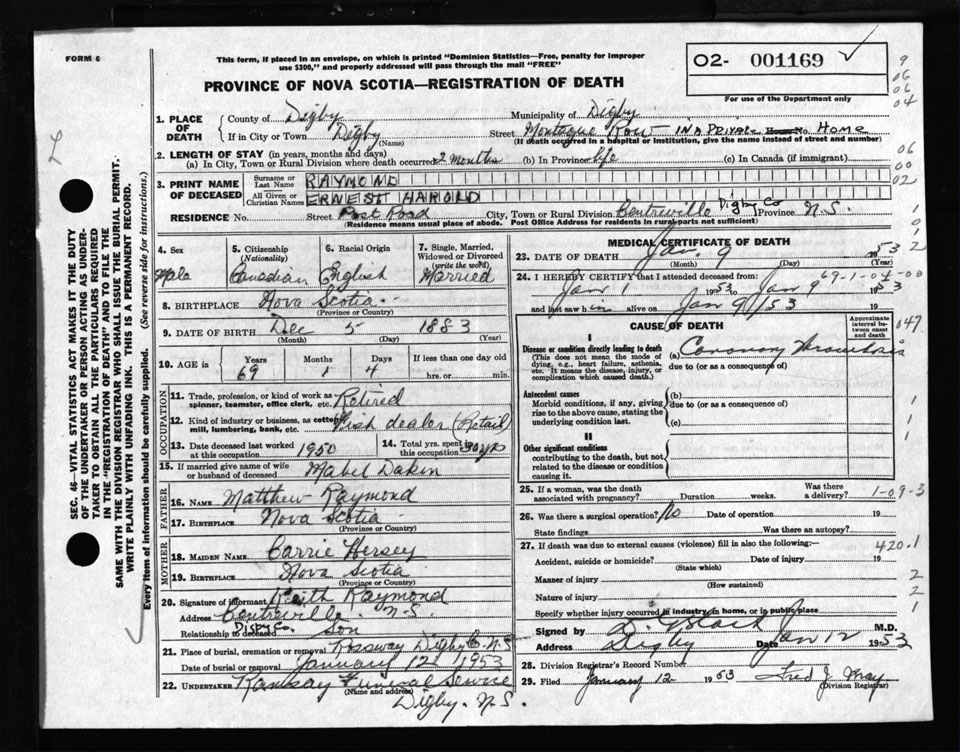 FORM 6
This form, if placed in an envelope, on which is printed "Dominion Statistics—Free, penalty for improper
use $300," and properly addressed will pass through the mail "FREE"
02- 001169
PROVINCE OF NOVA SCOTIA—REGISTRATION OF DEATH
For use of the Department only
9
06
06
04
1. PLACE OF DEATH
County of Digby Municipality of Digby
If in City or Town Digby (Name) Street Montague Row - IN A PRIVATE HOME
(If death occurred in a hospital or institution, give the name instead of street and number)
2. LENGTH OF STAY (in years, months and days)
(a) In City, Town or Rural Division where death occurred 2 months (b) In Province life (c) In Canada (if immigrant)
06
00
02
3. PRINT NAME OF DECEASED
Surname or Last Name RAYMOND
All Given or Christian Names ERNEST HAROLD
RESIDENCE No. Street Post Road City, Town or Rural Division Centreville Digby Co Province N.S.
(Residence means usual place of abode. Post Office Address not sufficient in Rural Divisions)
4. Sex Male
5. Citizenship (Nationality) Canadian
6. Racial Origin English
7. Single, Married, Widowed or Divorced (write the word) Married
8. BIRTHPLACE Nova Scotia
(Province or Country)
9. DATE OF BIRTH Dec 5 1883
(Month) (Day) (Year)
10. AGE Years 69 Months 1 Days 4 If less than one day old hrs. or min.
OCCUPATION
11. Trade, profession, or kind of work as spinner, teamster, office clerk, etc. Retired
12. Kind of industry or business, as cotton mill, lumbering, bank, etc. Fish dealer (Retail)
13. Date deceased last worked at this occupation 1950
14. Total yrs. spent in this occupation 30 yrs
15. If married give name of wife or husband of deceased Mabel Dakin
FATHER
16. NAME Matthew Raymond
17. BIRTHPLACE Nova Scotia
(Province or Country)
MOTHER
18. MAIDEN NAME Carrie Hersey
19. BIRTHPLACE Nova Scotia
(Province or Country)
20. Signature of informant Keith Raymond
Address Centreville N.S.
Digby Co.
Relationship to deceased Son
21. Place of burial, cremation or removal Rossway Digby Co. N.S
Date of burial or removal January 12 1953
22. UNDERTAKER Ramsay Funeral Service
(Name and address)
Digby. N.S.
MEDICAL CERTIFICATE OF DEATH
23. DATE OF DEATH Jan. 9 1953
(Month) (Day) (Year)
69-1-04-00
24. I HEREBY CERTIFY that I attended deceased from:
Jan 1 1953 to Jan 9 1953
and last saw h im alive on Jan 9/53 19
CAUSE OF DEATH
Approximate interval between onset and death
047
I
Disease or condition directly leading to death
(This does not mean the mode of dying, e.g., heart failure, asthenia, etc. It means the disease, injury, or complication which caused death.)
(a) Coronary Thrombosis
due to (or as a consequence of)
Antecedent causes
Morbid conditions, if any, giving rise to the above cause, stating the underlying condition last.
(b)
due to (or as a consequence of)
(c)
II
Other significant conditions
contributing to the death, but not related to the disease or condition causing it.
25. If a woman, was the death associated with pregnancy? Duration weeks. Was there a delivery?
1-09-3
26. Was there a surgical operation? No Date of operation 19
State findings Was there an autopsy?
27. If death was due to external causes (violence) fill in also the following:—
420.1
Accident, suicide or homicide? Date of injury 19
(State which)
Manner of injury
(How sustained)
Nature of injury
Specify whether injury occurred in industry in home, or in public place
Signed by M.D.
Address Digby Date Jan 12 1953
28. Division Registrar's Record Number
29. Filed January 12 1953 Fred J. May
(Division Registrar)
SEC. 46—VITAL STATISTICS ACT MAKES IT THE DUTY
OF THE UNDERTAKER OR PERSON ACTING AS UNDERTAKER
TO OBTAIN ALL THE PARTICULARS REQUIRED
IN THE "REGISTRATION OF DEATH" AND TO FILE IT
WITH THE DIVISION REGISTRAR WHO SHALL ISSUE THE BURIAL PERMIT.
WRITE PLAINLY WITH UNFADING INK. THIS IS A PERMANENT RECORD.
Every item of information should be carefully supplied. (See reverse side for instructions.)